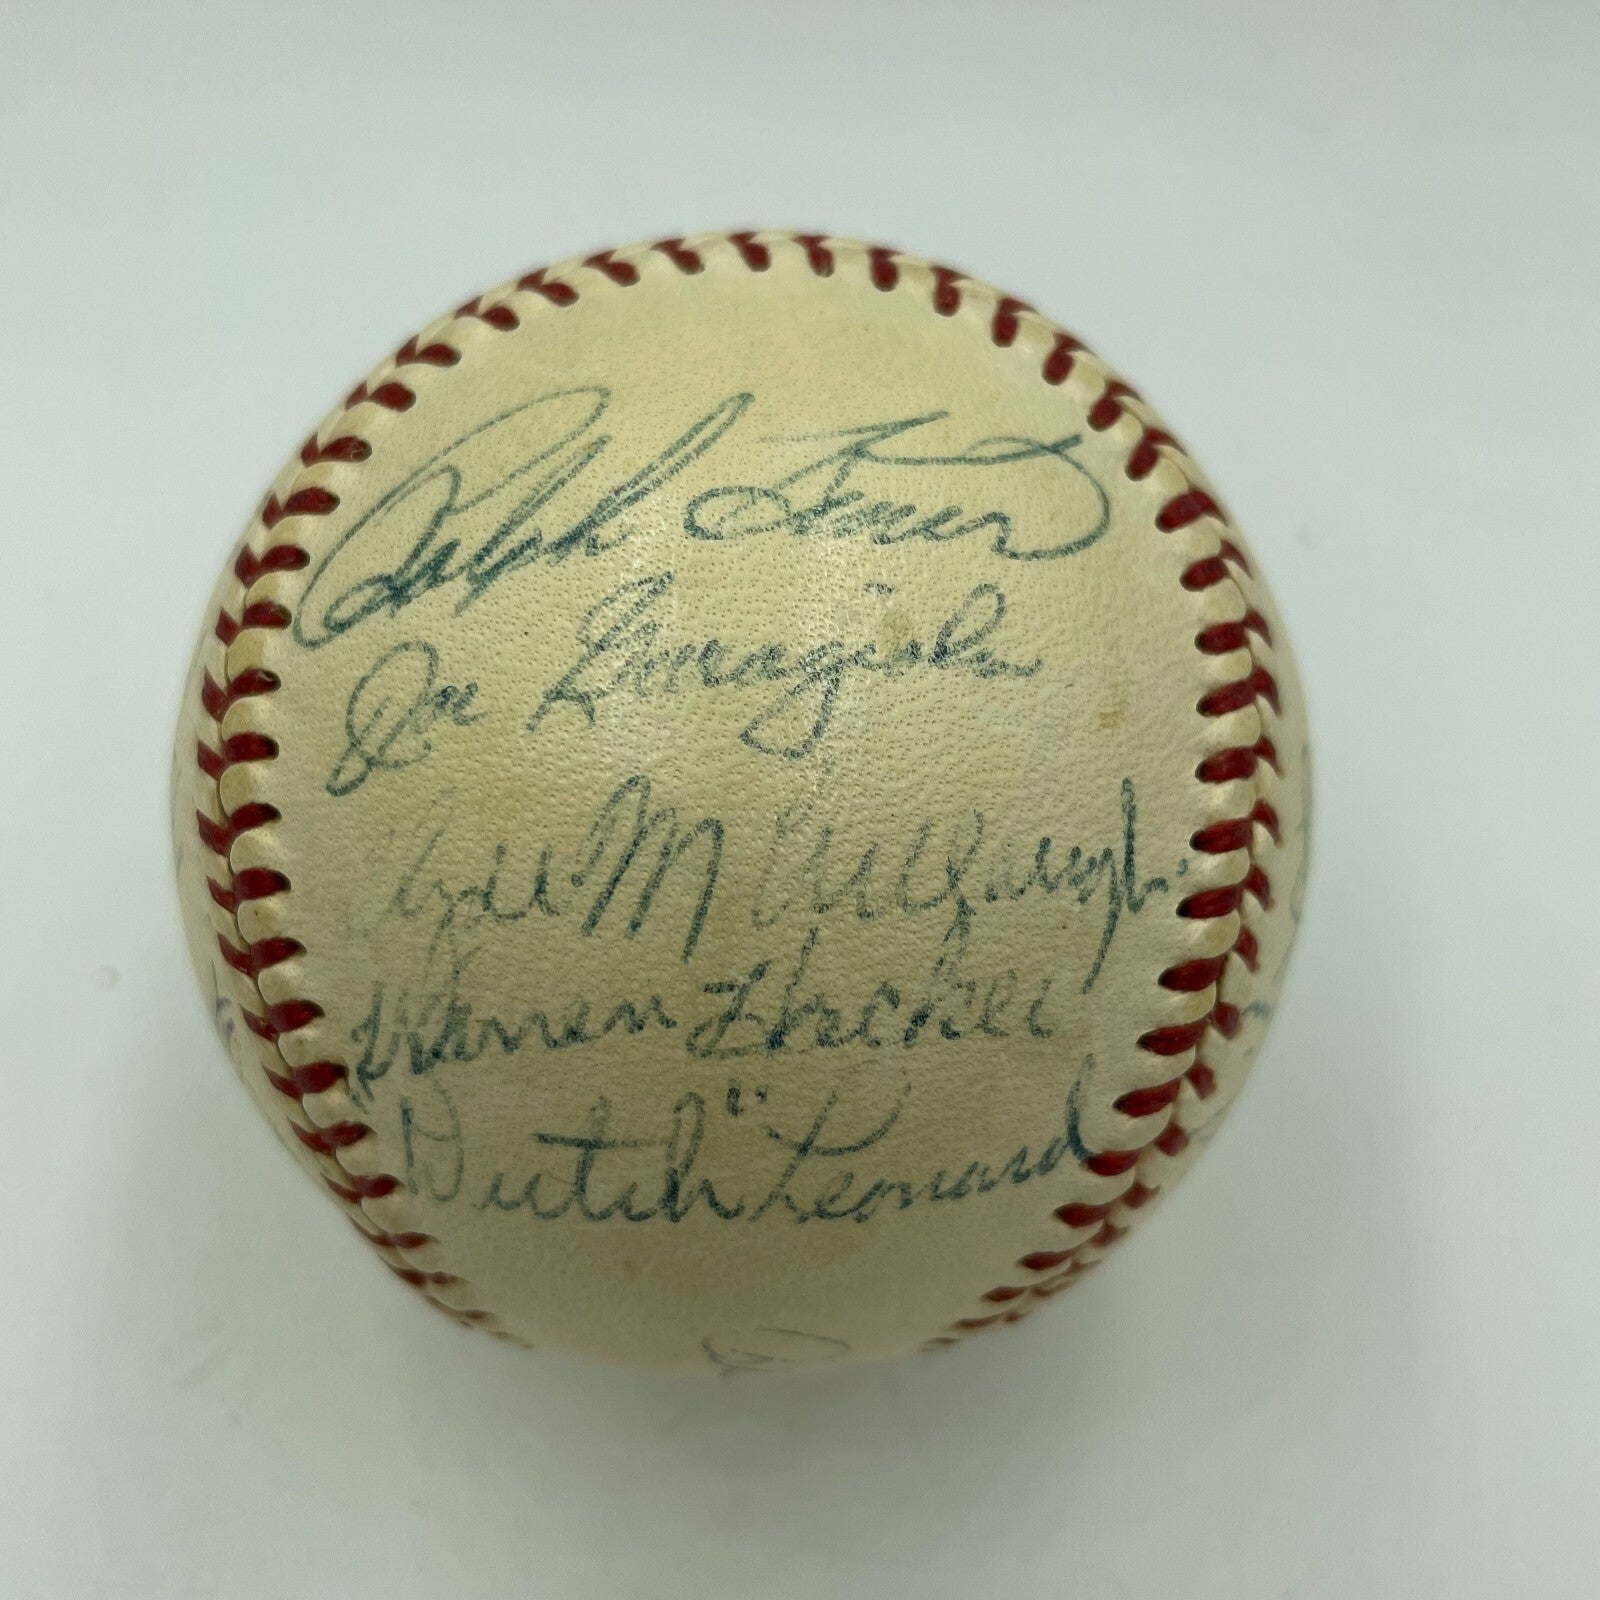 Ralph Kiner
Joe Garagiola
Clyde McCullough
Warren Hacker
"Dutch" Leonard